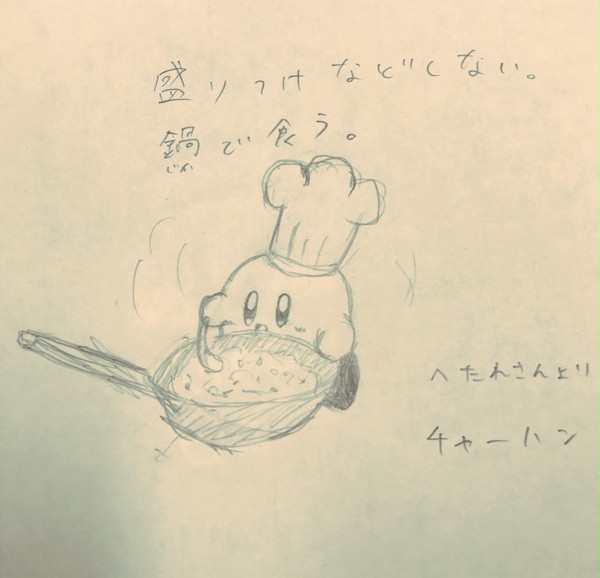 盛りつけなどしない。
鍋で食う。
じか
へたれさんより
チャーハン